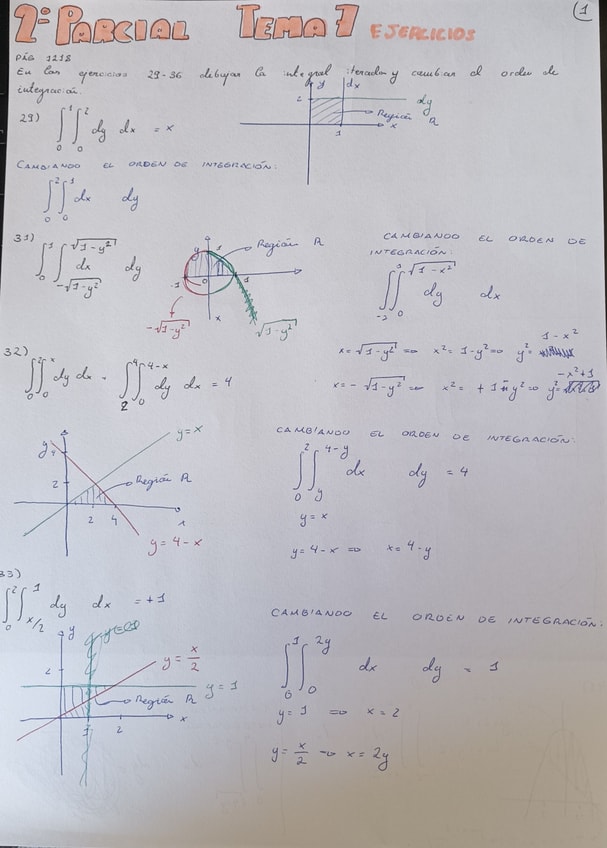 2º PARCIAL TEMA 7 EJERCICIOS
1
PÁG 1218
En los ejercicios 29-36 dibujar la integral iterada y cambiar el orden de
integración.
29) ∫₀¹ ∫₀² dy dx = x
y
dx
2
dy
Región R
1
x
CAMBIANDO EL ORDEN DE INTEGRACIÓN:
∫₀² ∫₀¹ dx dy
31) ∫₀¹ ∫_{-√(1-y²)}^{√(1-y²)} dx dy
y
1
Región R
-1
0
1
-√(1-y²)
x
√(1-y²)
CAMBIANDO EL ORDEN DE
INTEGRACIÓN:
dy dx
x = √(1-y²) ⇒ x² = 1-y² ⇒ y² = 1-x²
x = - √(1-y²) ⇒ x² = + 1 - y² ⇒ y² = -x²+1
32) ∫₀² ∫₀ˣ dy dx + ∫₂⁴ ∫₀^{4-x} dy dx = 4
y
4
y = x
2
Región R
2
4
x
y = 4-x
CAMBIANDO EL ORDEN DE INTEGRACIÓN:
∫₀² ∫_y^{4-y} dx dy = 4
y = x
y = 4-x ⇒ x = 4-y
33)
∫₀² ∫_{x/2}^1 dy dx = +1
y
y = x/2
y = 1
Región R
2
x
CAMBIANDO EL ORDEN DE INTEGRACIÓN:
∫₀¹ ∫₀^{2y} dx dy = 1
y = 1 ⇒ x = 2
y = x/2 ⇒ x = 2y